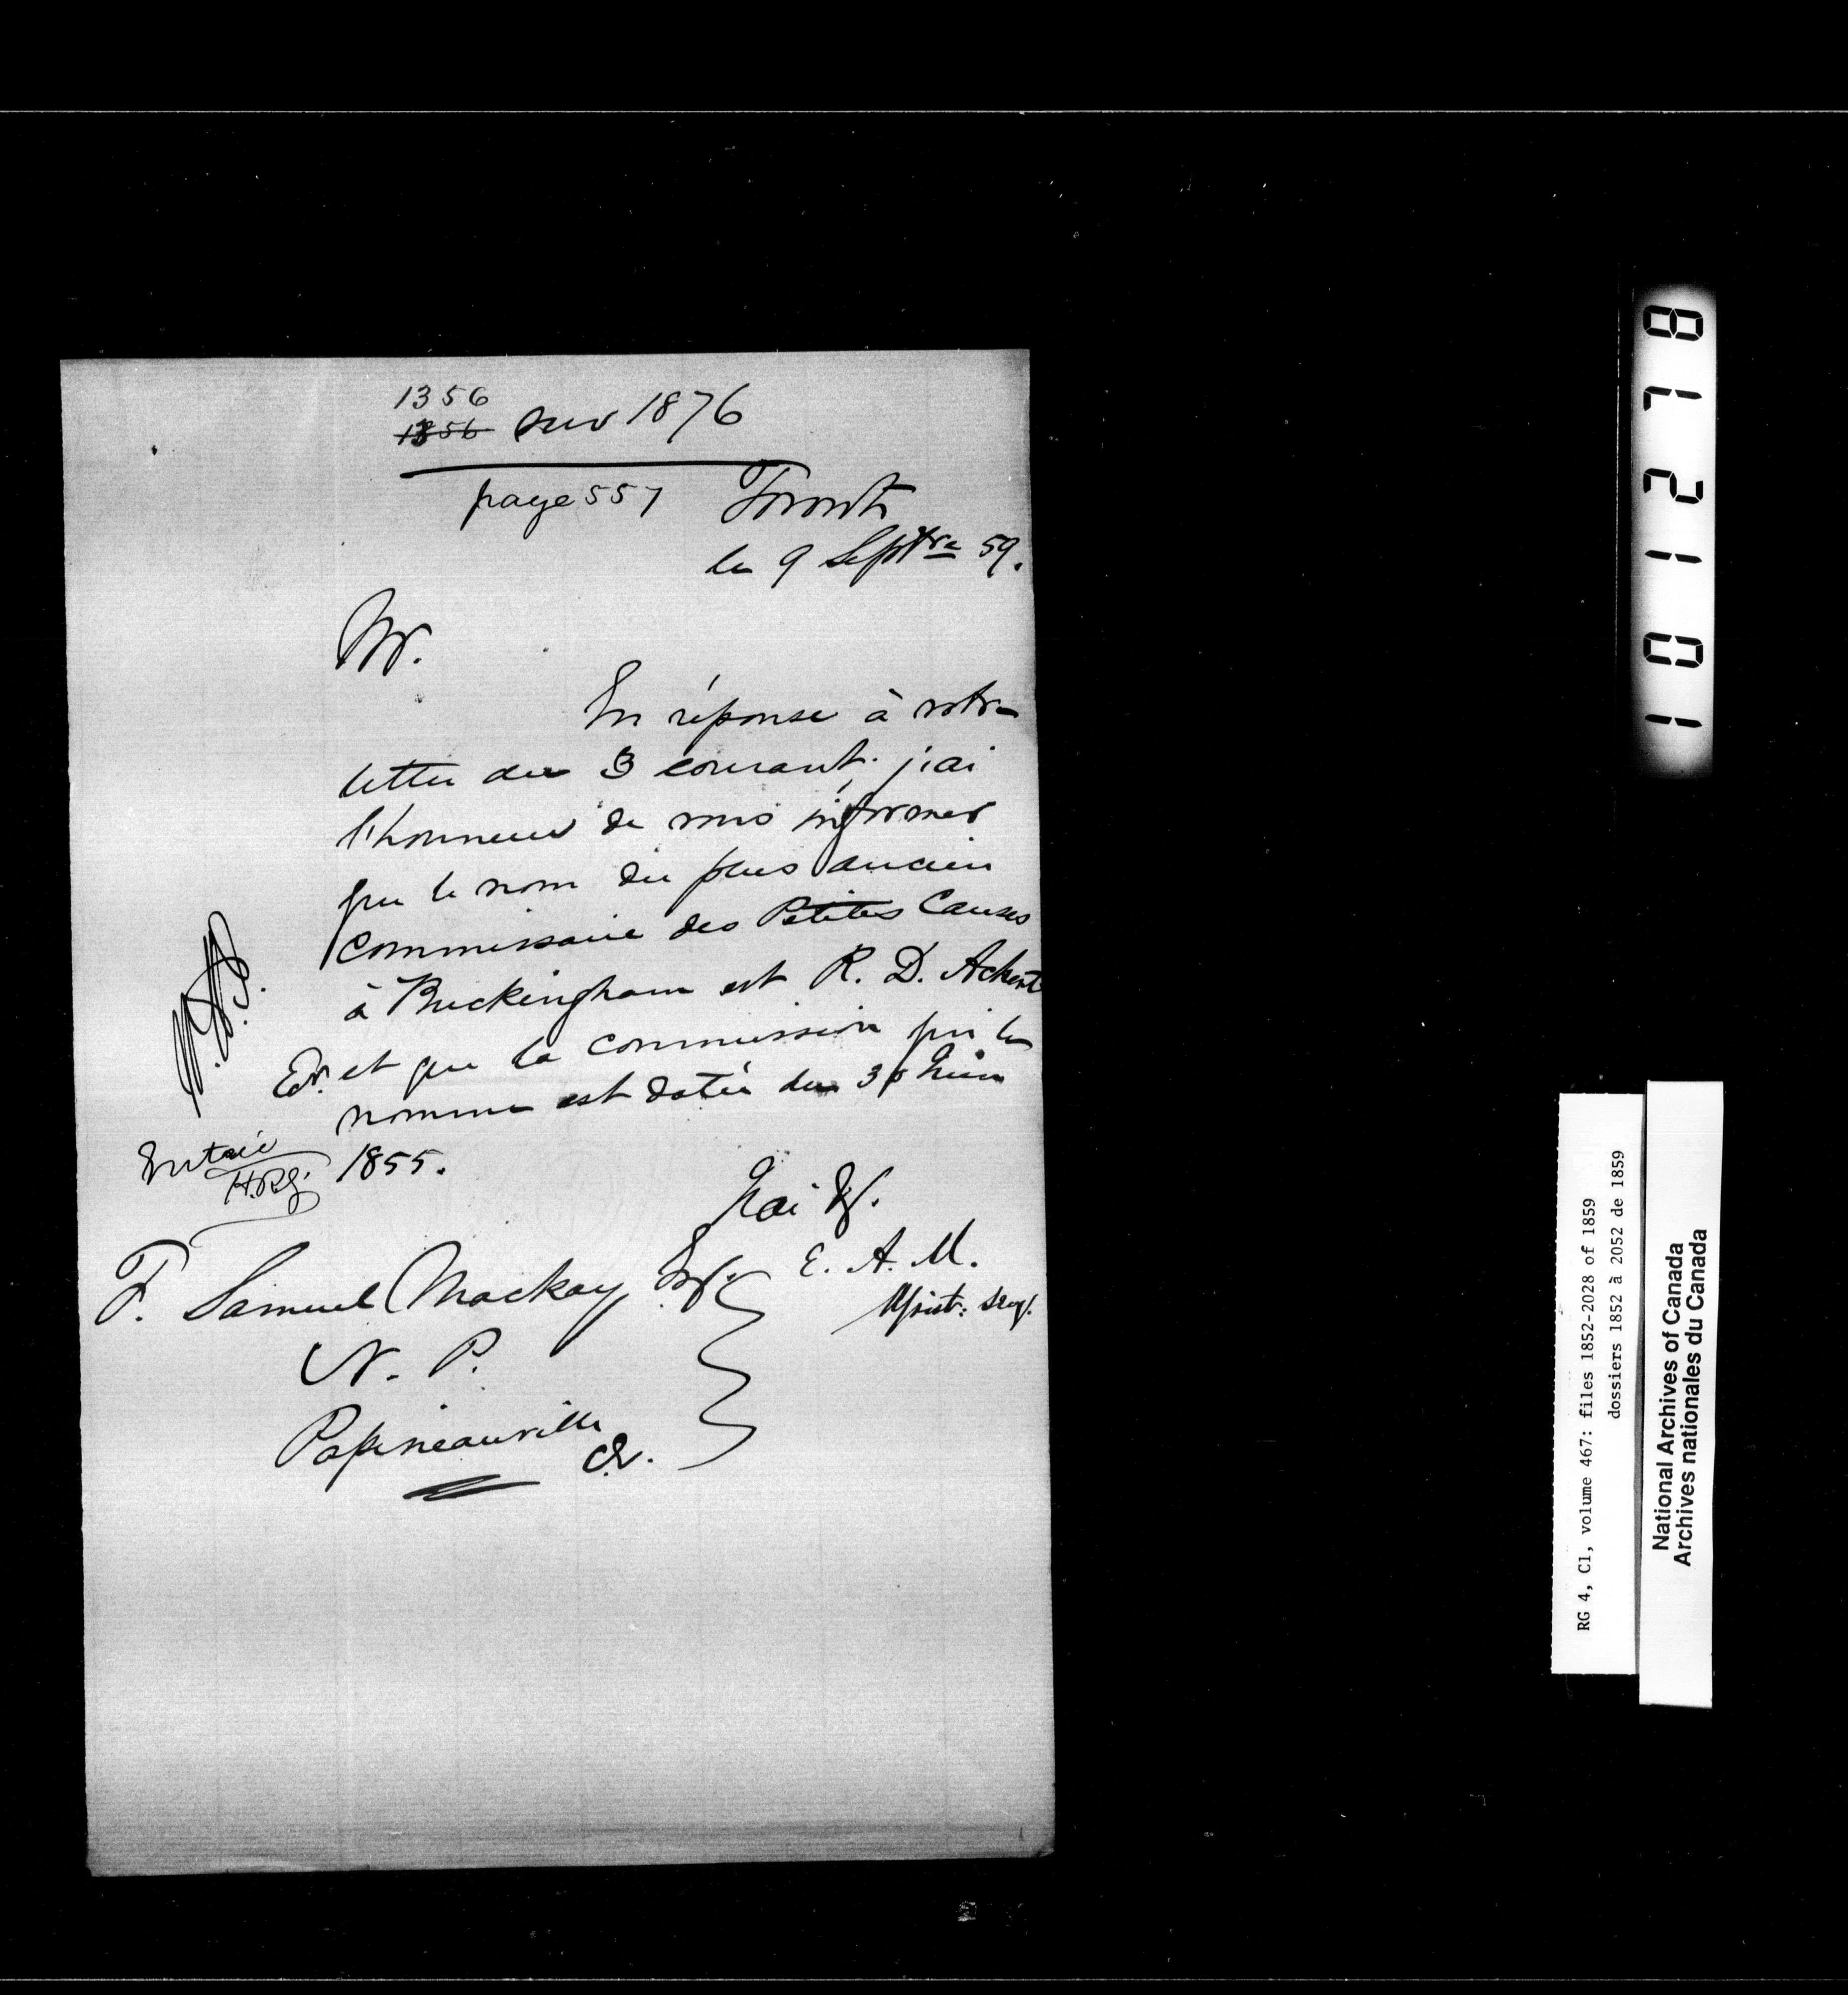 1356
1856 sur 1876
page 557 Toronto
le 9 Septbre 59.
Mr.
En réponse à votre
lettre du 3 courant. j'ai
l'honneur de vous informer
que le nom du plus ancien
Commissaire des Petites Causes
à Buckingham est R. D. Ackert
Er. et que la commission qui le
nomme est datée du 30 Juin
1855.
Entrée
J'ai &.
F. Samuel Mackay Er.
E. A. M.
Assist: Secy.
N. P.
Papineauville
1 0 1 2 7 8
RG 4, C1, volume 467: files 1852-2028 of 1859
dossiers 1852 à 2052 de 1859
National Archives of Canada
Archives nationales du Canada